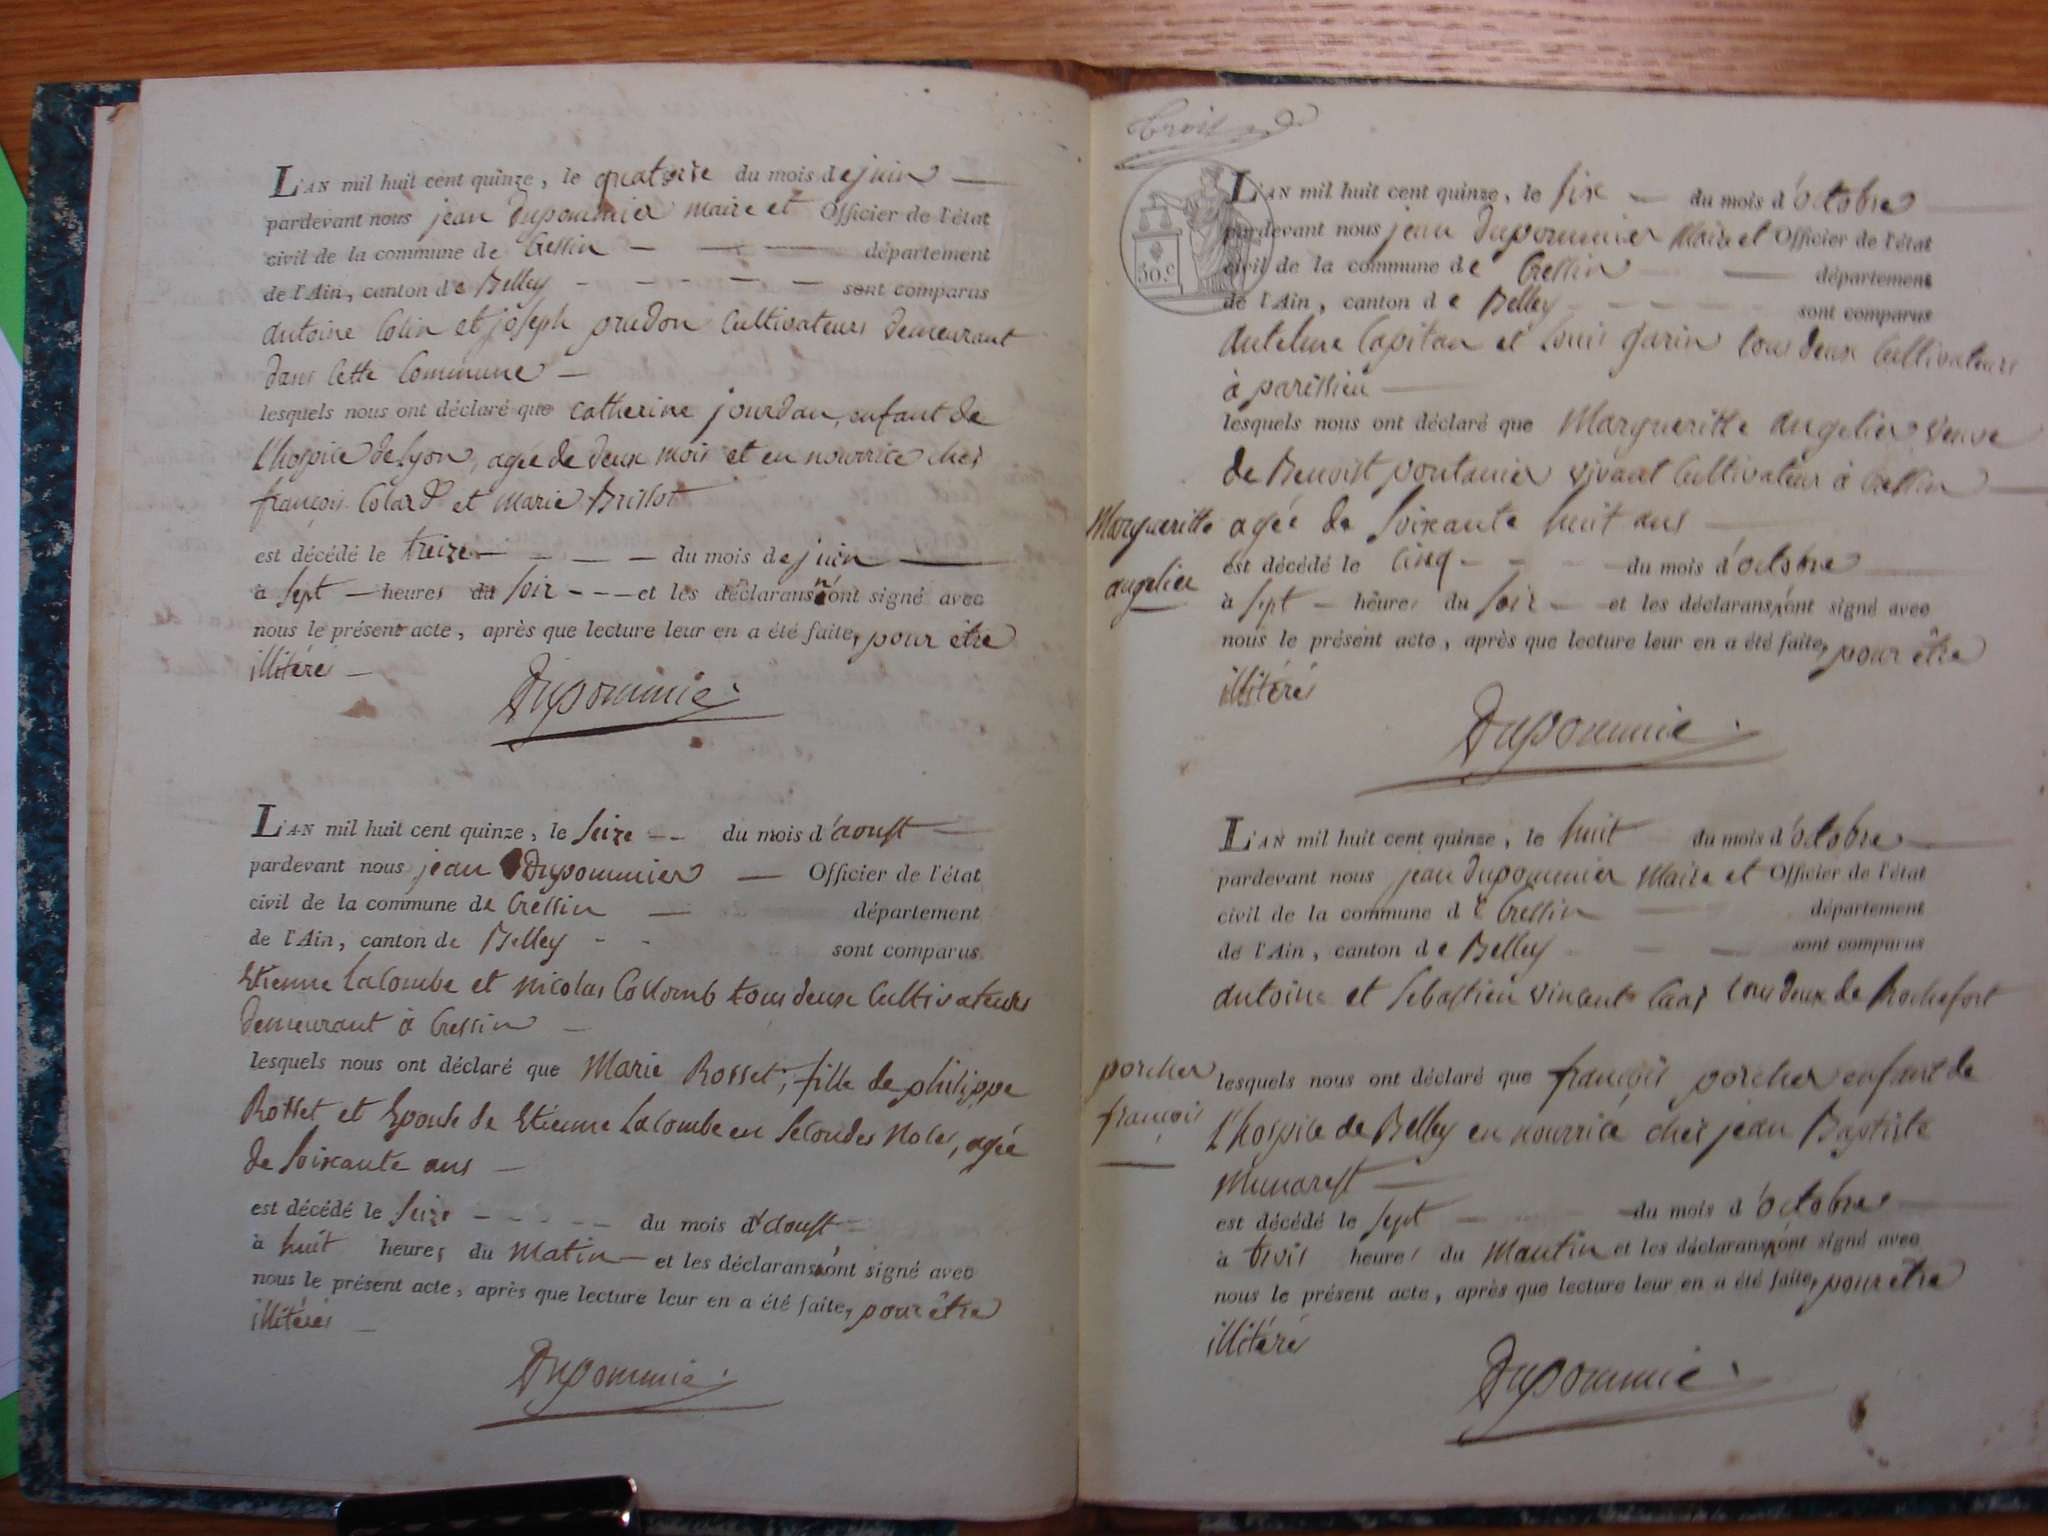 L'AN mil huit cent quinze, le quatorze du mois de juin
pardevant nous jean Dupommier maire et Officier de l'état
civil de la commune de Cressin département
de l'Ain, canton de Belley sont comparus
antoine Colin et joseph prudon Cultivateurs demeurant
dans Cette Commune
lesquels nous ont déclaré que catherine jourdan, enfant de
l'hospice de Lyon, agée de deux mois et en nourrice chés
françois Colard et Marie Brissot
est décédé le treize du mois de juin
à sept heures du soir et les déclarans n'ont signé avec
nous le présent acte, après que lecture leur en a été faite, pour être
illitérés
Dupommie
L'AN mil huit cent quinze, le seize du mois d'aoust
pardevant nous jean Dupommier Officier de l'état
civil de la commune de Cressin département
de l'Ain, canton de Belley sont comparus
Etienne Lacombe et nicolas Collomb tous deux Cultivateurs
demeurant à Cressin
lesquels nous ont déclaré que Marie Rosset, fille de philippe
Rosset et Epouse de Etienne Lacombe en secondes Noces, agée
de soixante ans
est décédé le seize du mois d'aoust
à huit heures du Matin et les déclarans n'ont signé avec
nous le présent acte, après que lecture leur en a été faite, pour être
illitérés
Dupommie
trois
30.c
L'AN mil huit cent quinze, le six du mois d'octobre
pardevant nous jean Dupommier Maire et Officier de l'état
civil de la commune de Cressin département
de l'Ain, canton de Belley sont comparus
antelme Capitan et Louis garin tous deux Cultivateurs
à paressieu
lesquels nous ont déclaré que Margueritte angelier veuve
de Benoist pontanier vivant Cultivateur à Cressin
Margueritte angelier
agée de soixante huit ans
est décédé le cinq du mois d'octobre
à sept heures du soir et les déclarans n'ont signé avec
nous le présent acte, après que lecture leur en a été faite, pour être
illitérés
Dupommie
L'AN mil huit cent quinze, le huit du mois d'octobre
pardevant nous jean dupommier Maire et Officier de l'état
civil de la commune de Cressin département
de l'Ain, canton de Belley sont comparus
antoine et sebastien vincent tous deux de Rochefort
porcher françois
lesquels nous ont déclaré que françois porcher enfant de
l'hospice de Belley en nourrice chés jean Baptiste
Munarest
est décédé le sept du mois d'octobre
à trois heures du Mautin et les déclarans n'ont signé avec
nous le présent acte, après que lecture leur en a été faite, pour être
illitéré
Dupommie